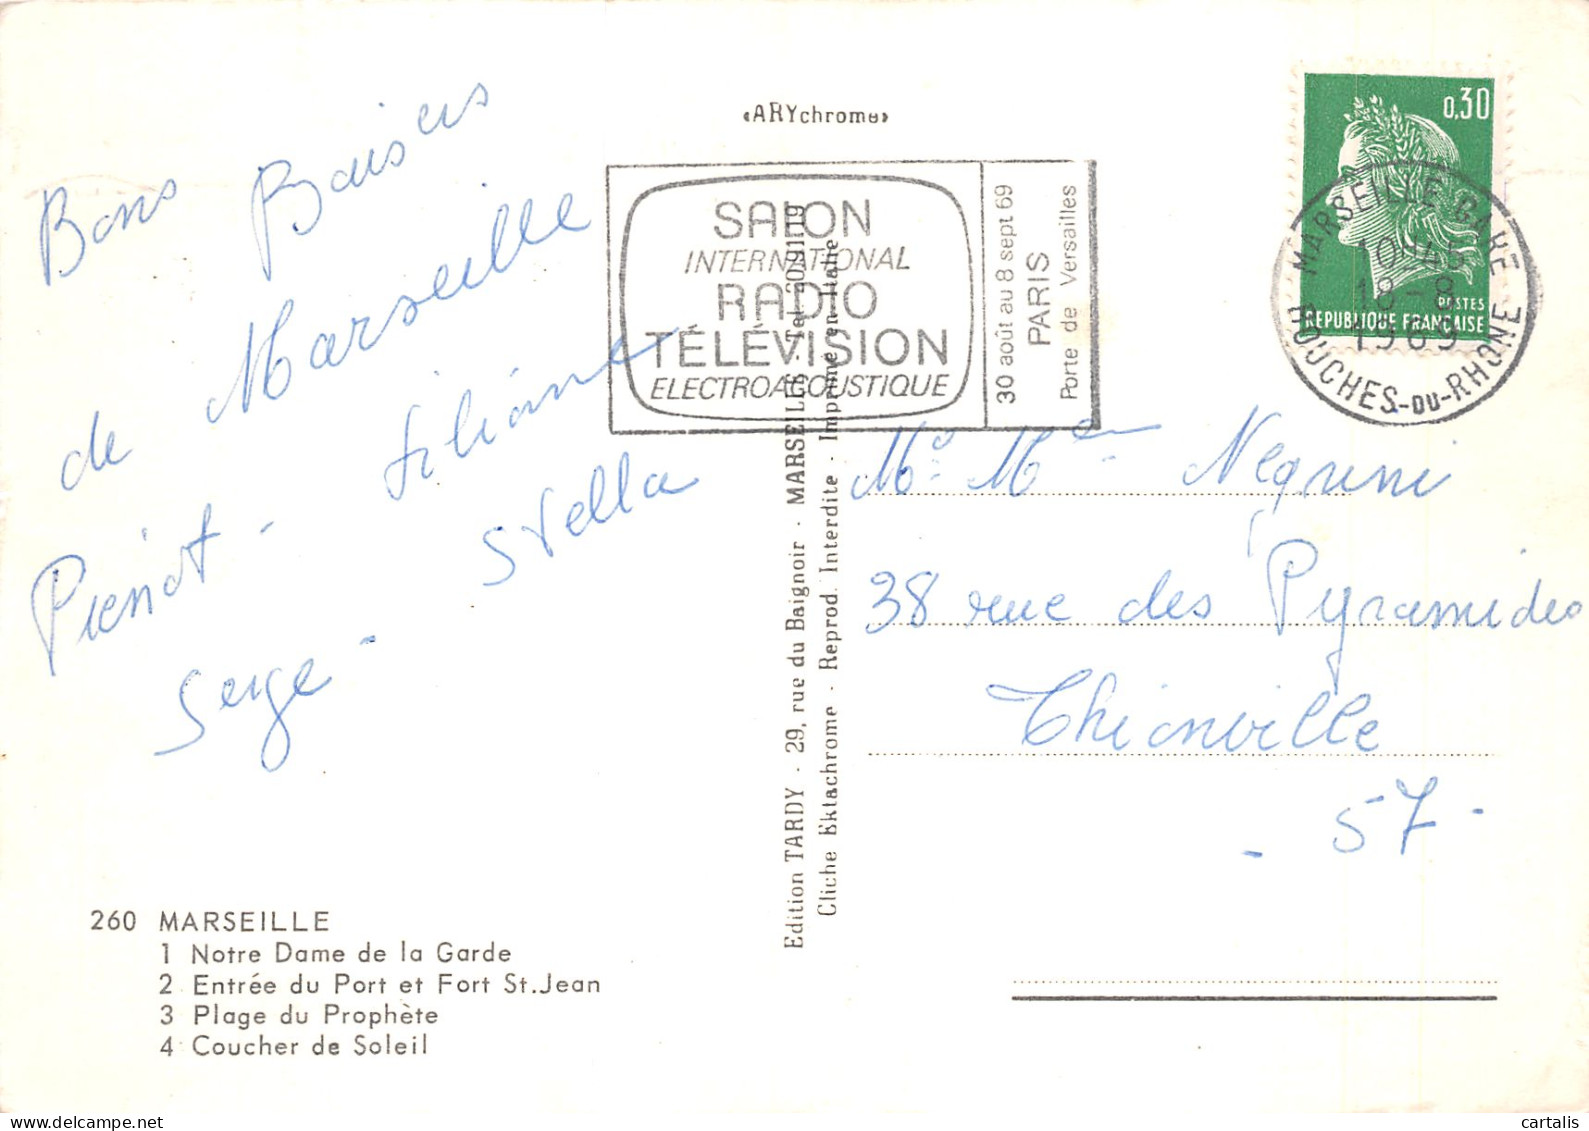 Bons Baisers
de Marseille
Pierrot - Liliane
Stella
Serge -
«ARYchrome»
SALON
INTERNATIONAL
RADIO
TÉLÉVISION
ELECTROACOUSTIQUE
30 août au 8 sept 69
PARIS
Porte de Versailles
0,30
POSTES
REPUBLIQUE FRANÇAISE
MARSEILLE GARE
10H45
18-8
1969
BOUCHES-DU-RHONE
Mr. Mme Negrini
38 rue des Pyramides
Thionville
- 57 -
Edition TARDY - 29, rue du Baignoir - MARSEILLE - Tel. 20.91.19
Cliche Ektachrome - Reprod. Interdite - Imprimé en Italie
260 MARSEILLE
1 Notre Dame de la Garde
2 Entrée du Port et Fort St.Jean
3 Plage du Prophète
4 Coucher de Soleil
delcampe.net
cartalis